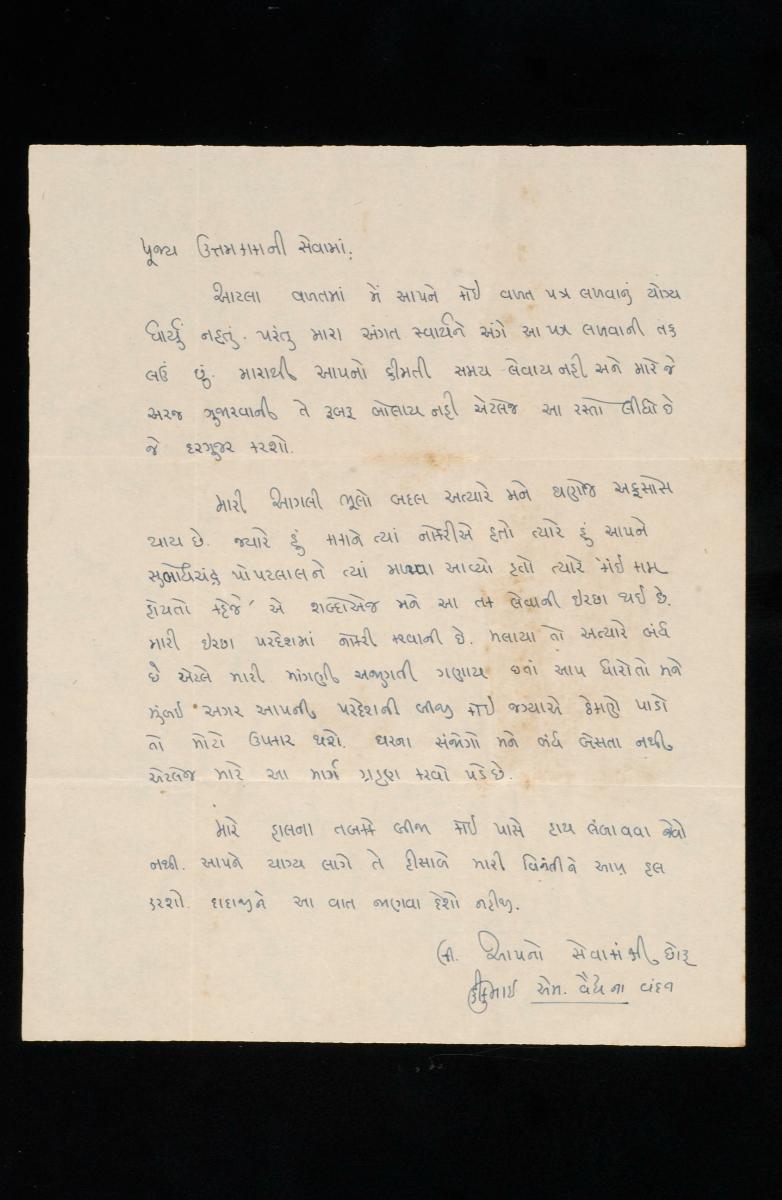 પૂજ્ય ઉત્તમકાકાની સેવામાં;
આટલા વખતમાં મેં આપને કોઈ વખત પત્ર લખવાનું યોગ્ય
ધાર્યું નહતું. પરંતુ મારા અંગત સ્વાર્થને અંગે આ પત્ર લખવાની તક
લઉં છું. મારાથી આપનો કીમતી સમય લેવાય નહી અને મારે જે
અરજ ગુજારવાની તે રૂબરૂ બોલાય નહી એટલેજ આ રસ્તો લીધો છે
જે દરગુજર કરશો.
મારી આગલી ભૂલો બદલ અત્યારે મને ઘણોજ અફસોસ
થાય છે. જ્યારે હું કાકાને ત્યાં નોકરીએ હતો ત્યારે હું આપને
સુબોધચંદ્ર પોપટલાલને ત્યાં મળવા આવ્યો હતો ત્યારે 'કાંઈ કામ
હોયતો કહેજે' એ શબ્દોએજ મને આ તક લેવાની ઇચ્છા થઈ છે.
મારી ઇચ્છા પરદેશમાં નોકરી કરવાની છે. મલાયા તો અત્યારે બંધ
છે એટલે મારી માંગણી અજુગતી ગણાય છતાં આપ ધારોતો મને
મુંબઈ અગર આપની પરદેશની બીજી કોઈ જગ્યાએ ઠેકાણે પાડો
તો મોટો ઉપકાર થશે. ઘરના સંજોગો મને બંધ બેસતા નથી
એટલેજ મારે આ માર્ગ ગ્રહણ કરવો પડે છે.
મારે હાલના તબક્કે બીજા કોઈ પાસે હાથ લંબાવવા જેવો
નથી. આપને યોગ્ય લાગે તે હીસાબે મારી વિનંતીને આપ હલ
કરશો. દાદાજીને આ વાત જાણવા દેશો નહીજ.
લી. આપનો સેવાકાંક્ષી છોરૂ
એમ. વૈદ્ય ના વંદન